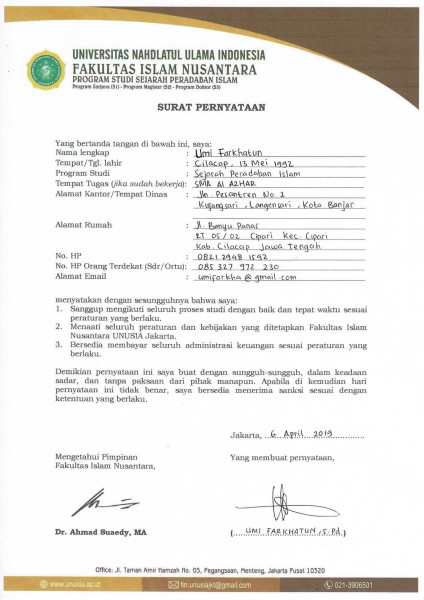 UNIVERSITAS NAHDLATUL ULAMA INDONESIA
FAKULTAS ISLAM NUSANTARA
PROGRAM STUDI SEJARAH PERADABAN ISLAM
Program Sarjana (S1) - Program Magister (S2) - Program Doktor (S3)
SURAT PERNYATAAN
Yang bertanda tangan di bawah ini, saya:
Nama lengkap : Umi Farkhatun
Tempat/Tgl. lahir : Cilacap, 13 Mei 1992
Program Studi : Sejarah Peradaban Islam
Tempat Tugas (jika sudah bekerja): SMA Al AZHAR
Alamat Kantor/Tempat Dinas : Jln Pesantren No. 2
Kujangsari, Langensari, Kota Banjar
Alamat Rumah : Jl. Banyu Panas
RT 05/02 Cipari Kec. Cipari
Kab. Cilacap Jawa Tengah
No. HP : 0821 2948 1592
No. HP Orang Terdekat (Sdr/Ortu): 085 327 972 230
Alamat Email : umifarkha@gmail.com
menyatakan dengan sesungguhnya bahwa saya:
1. Sanggup mengikuti seluruh proses studi dengan baik dan tepat waktu sesuai
peraturan yang berlaku.
2. Menaati seluruh peraturan dan kebijakan yang ditetapkan Fakultas Islam
Nusantara UNUSIA Jakarta.
3. Bersedia membayar seluruh administrasi keuangan sesuai peraturan yang
berlaku.
Demikian pernyataan ini saya buat dengan sungguh-sungguh, dalam keadaan
sadar, dan tanpa paksaan dari pihak manapun. Apabila di kemudian hari
pernyataan ini tidak benar, saya bersedia menerima sanksi sesuai dengan
ketentuan yang berlaku.
Jakarta, 6 April 2019
Mengetahui Pimpinan
Fakultas Islam Nusantara,
Yang membuat pernyataan,
Dr. Ahmad Suaedy, MA
( UMI FARKHATUN, S.Pd. )
Office: Jl. Taman Amir Hamzah No. 05, Pegangsaan, Menteng, Jakarta Pusat 10320
www.unusia.ac.id
fin.unusiajkt@gmail.com
021-3906501